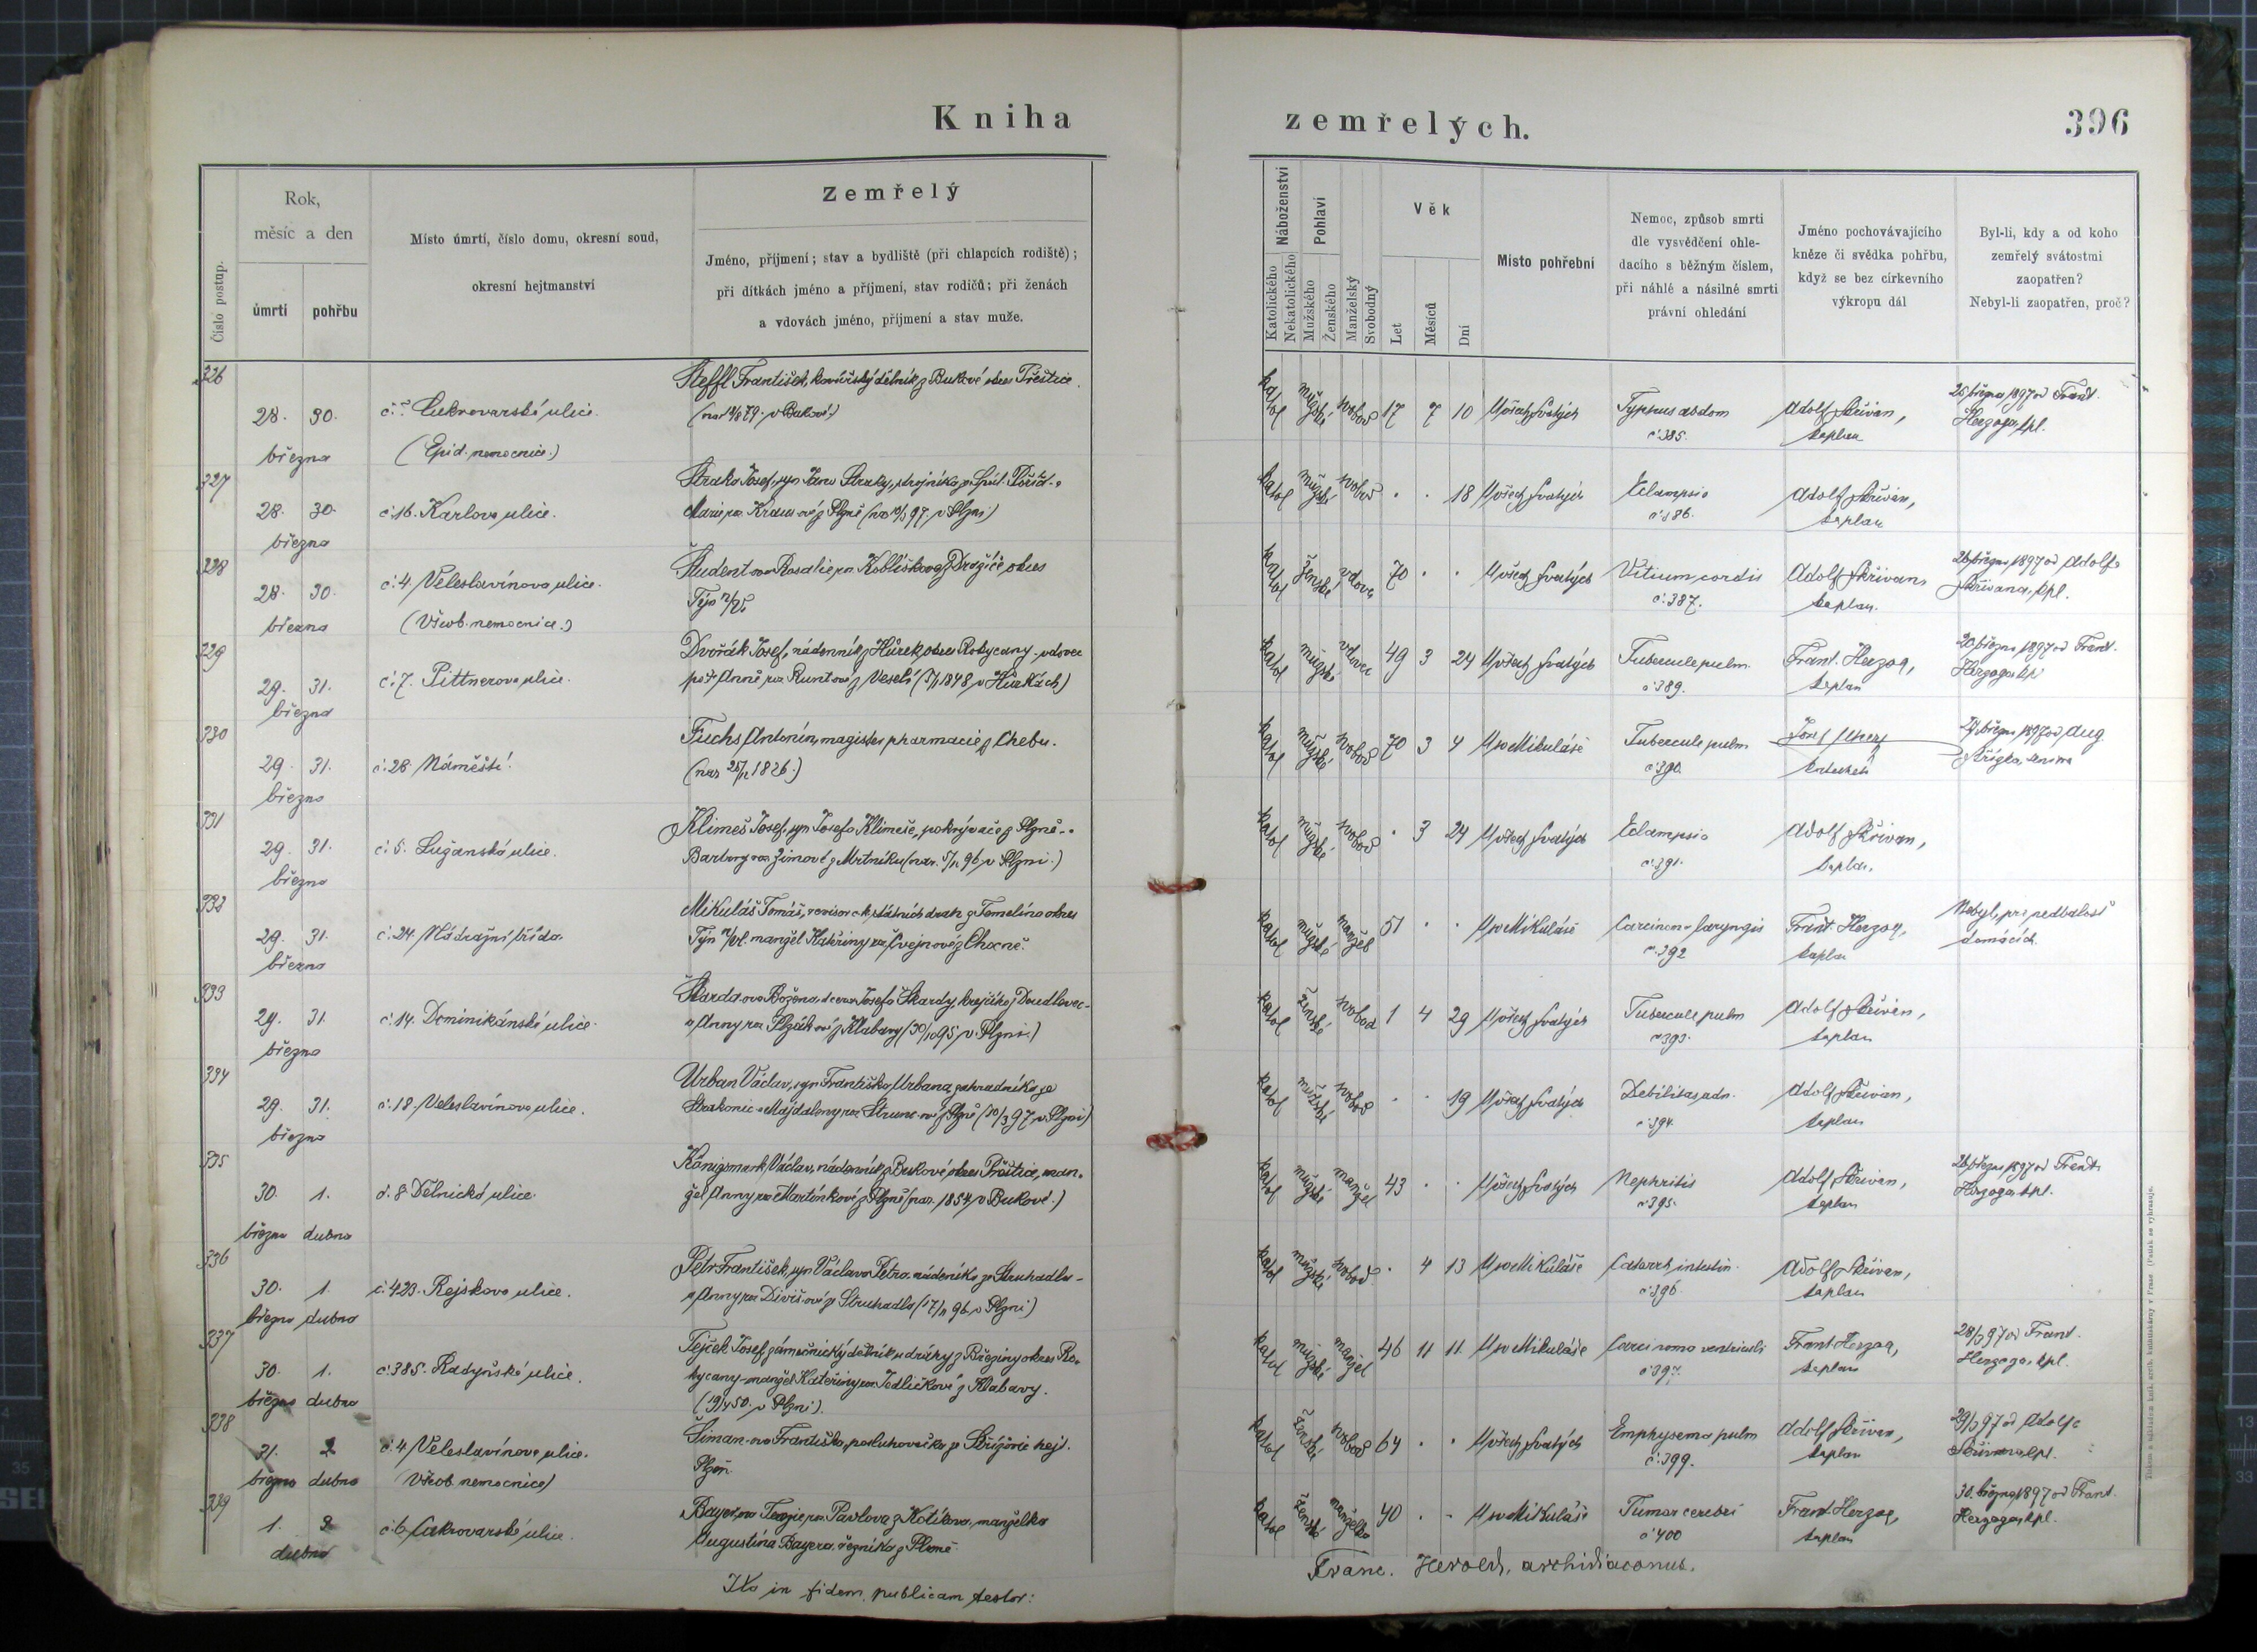 Kniha zemřelých.
396
Číslo postup.
Rok,
měsíc a den
úmrtí
pohřbu
Místo úmrtí, číslo domu, okresní soud,
okresní hejtmanství
Zemřelý
Jméno, příjmení; stav a bydliště (při chlapcích rodiště);
při dítkách jméno a příjmení, stav rodičů; při ženách
a vdovách jméno, příjmení a stav muže.
Náboženství
Katolického
Nekatolického
Pohlaví
Mužského
Ženského
Manželský
Svobodný
Věk
Let
Měsíců
Dní
Místo pohřební
Nemoc, způsob smrti
dle vysvědčení ohle-
dacího s běžným číslem,
při náhlé a násilné smrti
právní ohledání
Jméno pochovávajícího
kněze či svědka pohřbu,
když se bez církevního
výkropu dál
Byl-li, kdy a od koho
zemřelý svátostmi
zaopatřen?
Nebyl-li zaopatřen, proč?
326
28. 30.
března
Cukrovarská ulice.
(Epid. nemocnice.)
Steffl František, kovářský dělník z Bukové okres Přeštice.
v Bukové)
katol mužské svobod 17 7 10 U všech Svatých
Typhus abdom
č. 385.
Adolf Skřivan,
kaplan
března 1897 od Frant.
Herzoga, kpl.
327
28. 30.
března
č. 16. Karlova ulice.
Straka Josef, syn Jana Straky, strojníka
Marie roz. Kraus-ové z Plzně v Plzni)
katol mužské svobod . . 18 U všech Svatých
Eclampsia
č. 386.
Adolf Skřivan,
kaplan
328
28. 30.
března
č. 4. Veleslavínova ulice.
(Všeob. nemocnice.)
Študent-ova Rosalie roz. Koblišková z Dražíče okres
Týn n/Vl.
katol ženské vdova 70 . . U všech Svatých
Vitium cordis
č. 387.
Adolf Skřivan,
kaplan.
března 1897 od Adolfa
Skřivana, kpl.
329
29. 31.
března
č. 7. Pittnerova ulice.
Dvořák Josef, nádenník z Hůrek, okres Rokycany - vdovec
po † Anně roz. Runtové z Veselí 1848 v Hůrkách)
katol mužské vdovec 49 3 24 U všech Svatých
Tubercule pulm.
č. 389.
Frant. Herzog,
kaplan
20. března 1897 od Frant.
Herzoga kpl
330
29. 31.
března
č. 28 Náměstí.
Fuchs Antonín, magister pharmacie z Chebu.
(nar. 1826.)
katol mužské svobod 70 3 4 U sv. Mikuláše
Tubercule pulm
č. 390.
Josef
katecheta
března 1897 od Aug.
331
29. 31.
března
č. 5. Lužanská ulice.
Klimeš Josef, syn Josefa Klimeše, pokrývače z Plzně - a
Barbory roz. Zimové z Mrtníku (nar. 96 v Plzni.)
katol mužské svobod . 3 24 U všech Svatých
Eclampsia
č. 391.
Adolf Skřivan,
kaplan.
332
29. 31.
března
č. 24. Nádražní třída.
Mikuláš Tomáš, revisor c. k. státních drah z Temelína okres
Týn n/Vl. manžel Kateřiny roz. Švejnové z Chocně.
katol mužské manžel 51 . . U sv. Mikuláše
Carcinoma laryngis
č. 392
Frant. Herzog,
kaplan
Nebyl, pro nedbalost
domácích.
333
29. 31.
března
č. 14. Dominikánská ulice.
Škarda-ova Božena, dcera Josefa Škardy, krejčího z Doudlevec -
a Anny roz. Plzák-ové z Klabavy (30/10 95 v Plzni.)
katol ženské svobod 1 4 29 U všech Svatých
Tubercule pulm
č. 393.
Adolf Skřivan,
kaplan
334
29. 31.
března
č. 18. Veleslavínova ulice.
Urban Václav, syn Františka Urbana zahradníka ze
Strakonic a Majdaleny roz. Strunc-ové z Plzně (10/3 97 v Plzni)
katol mužské svobod . . 19 U všech Svatých
Debilitas, adn.
č. 394.
Adolf Skřivan,
kaplan
335
30. 1.
března dubna
č. 8 Dělnická ulice.
Königsmark Václav, nádenník z Bukové okres Přeštice, man-
žel Anny roz. Martínkové z Plzně (nar. 1854 v Bukové.)
katol mužské manžel 43 . . U všech Svatých
Nephritis
č. 395.
Adolf Skřivan,
kaplan
března 1897 od Frant.
Herzoga kpl.
336
30. 1.
března dubna
č. 423. Rejskova ulice.
Petr František, syn Václava Petra, nádeníka ze Struhadla -
a Anny roz. Diviš-ové ze Struhadla (17/11 96 v Plzni)
katol mužské svobod . 4 13 U sv. Mikuláše
Catarrh intestin.
č. 396.
Adolf Skřivan,
kaplan
337
30. 1.
března dubna
č. 385. Radyňská ulice.
Tejček Josef, zámečnický dělník u dráhy z Březiny okres Ro-
kycany - manžel Kateřiny roz. Jedličkové z Klabavy.
(19/4 50. v Plzni).
katol mužské manžel 46 11 11. U sv. Mikuláše
Carcinoma ventriculi
č. 397.
Frant Herzog,
kaplan
28/3 97 od Frant.
Herzoga, kpl.
338
31. 2
března dubna
č. 4 Veleslavínova ulice.
(Všeob. nemocnice)
Šiman-ova Františka, posluhovačka ze hejt.
Plzeň.
katol ženské svobod 64 . . U všech Svatých
Emphysema pulm
č. 399.
Adolf Skřivan,
kaplan
29/3 97 od Adolfa
Skřivana kpl.
339
1. 3
dubna
č. 6 Cukrovarská ulice.
Bayer-ova Terezie roz. Pavlova z Kotíkova, manželka
Augustina Bayera, řezníka z Plzně.
katol ženské manželka 40 . . U sv. Mikuláše
Tumor cerebri
č. 400
Frant Herzog,
kaplan
30. března 1897 od Frant.
Herzoga, kpl.
Ita in fidem publicam testor:
Franc. Herold, archidiaconus.